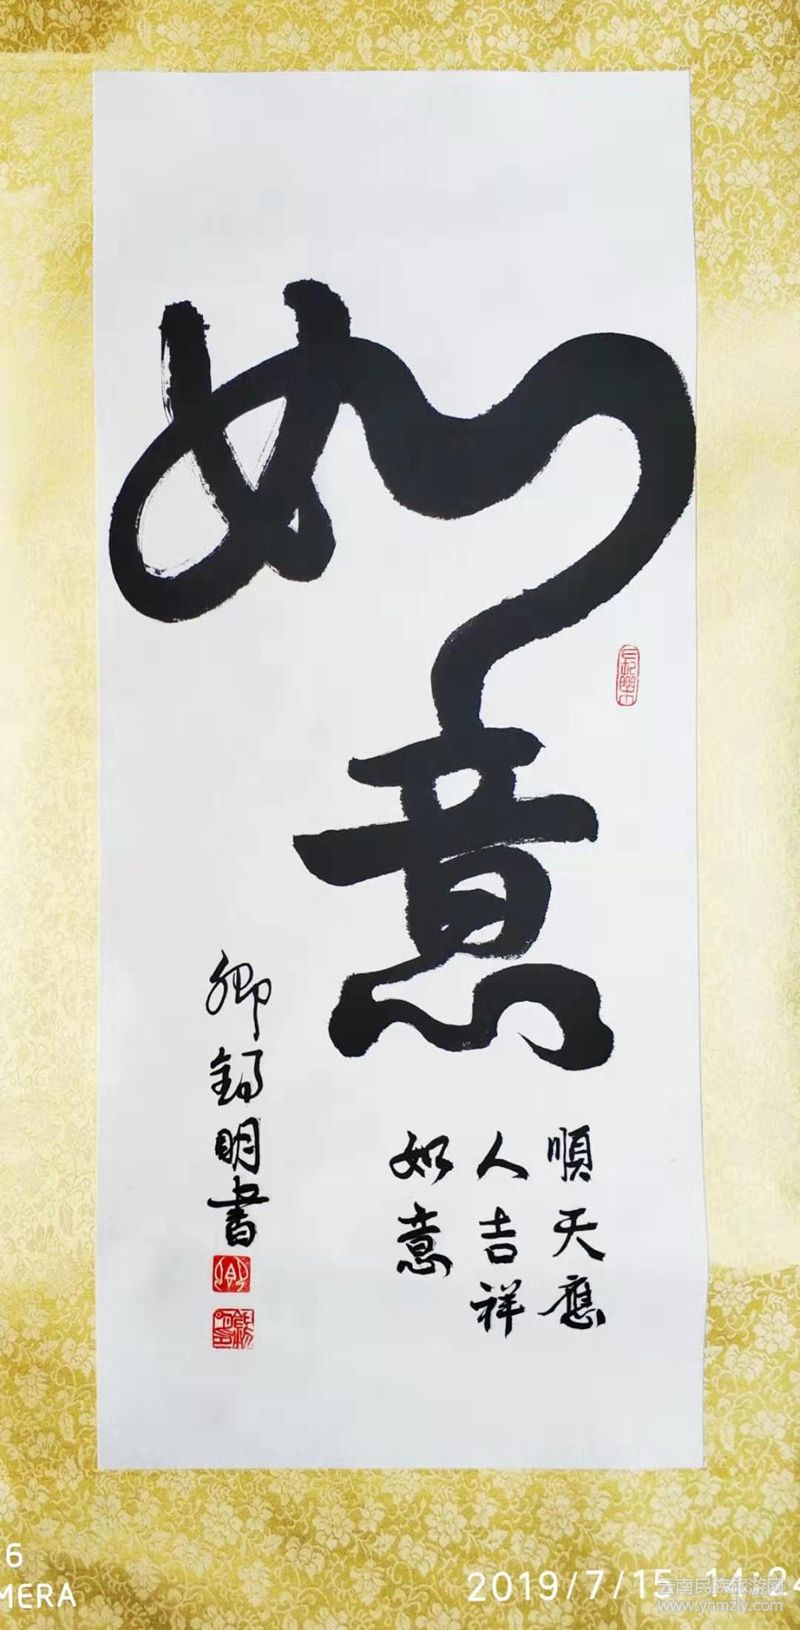 如意
順天應
人吉祥
如意
卿錫明書
6
MERA
2019/7/15 14:24
云南民族旅游网
www.ynmzly.com